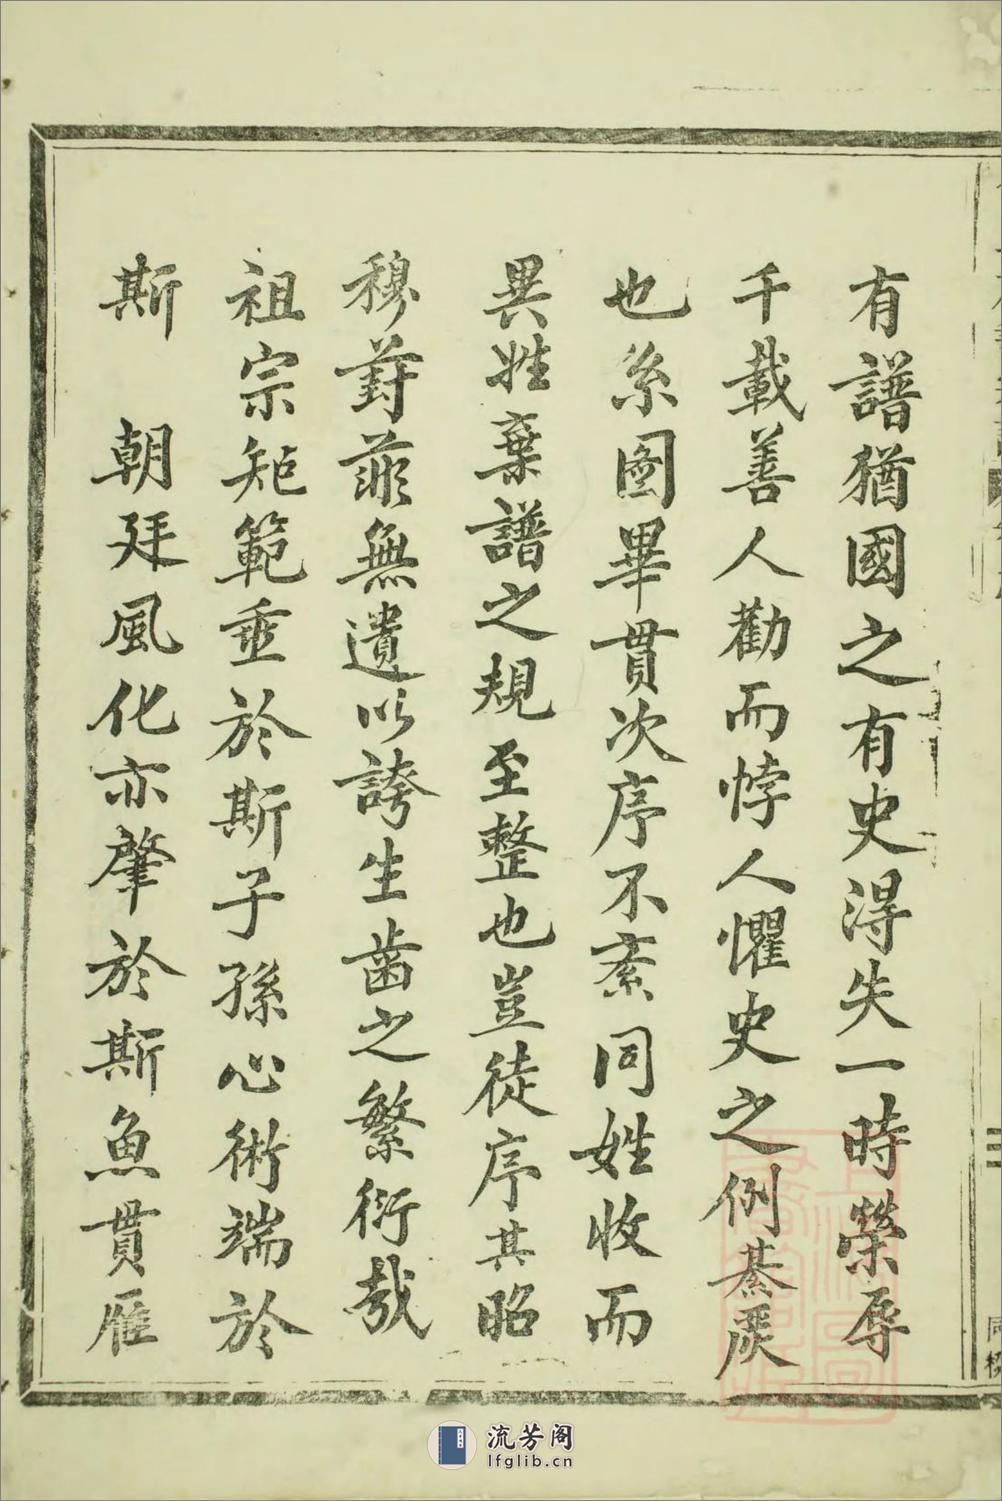 有譜猶國之有史淂失一時榮辱
千載善人勸而悖人懼史之例綦嚴
也系圖畢貫次序不紊同姓收而
異姓棄譜之規至整也豈徒序其昭
穆葑菲無遺以誇生齒之繁衍哉
祖宗矩範垂於斯子孫心術端於
斯 朝廷風化亦肇於斯魚貫雁
流芳阁
lfglib.cn